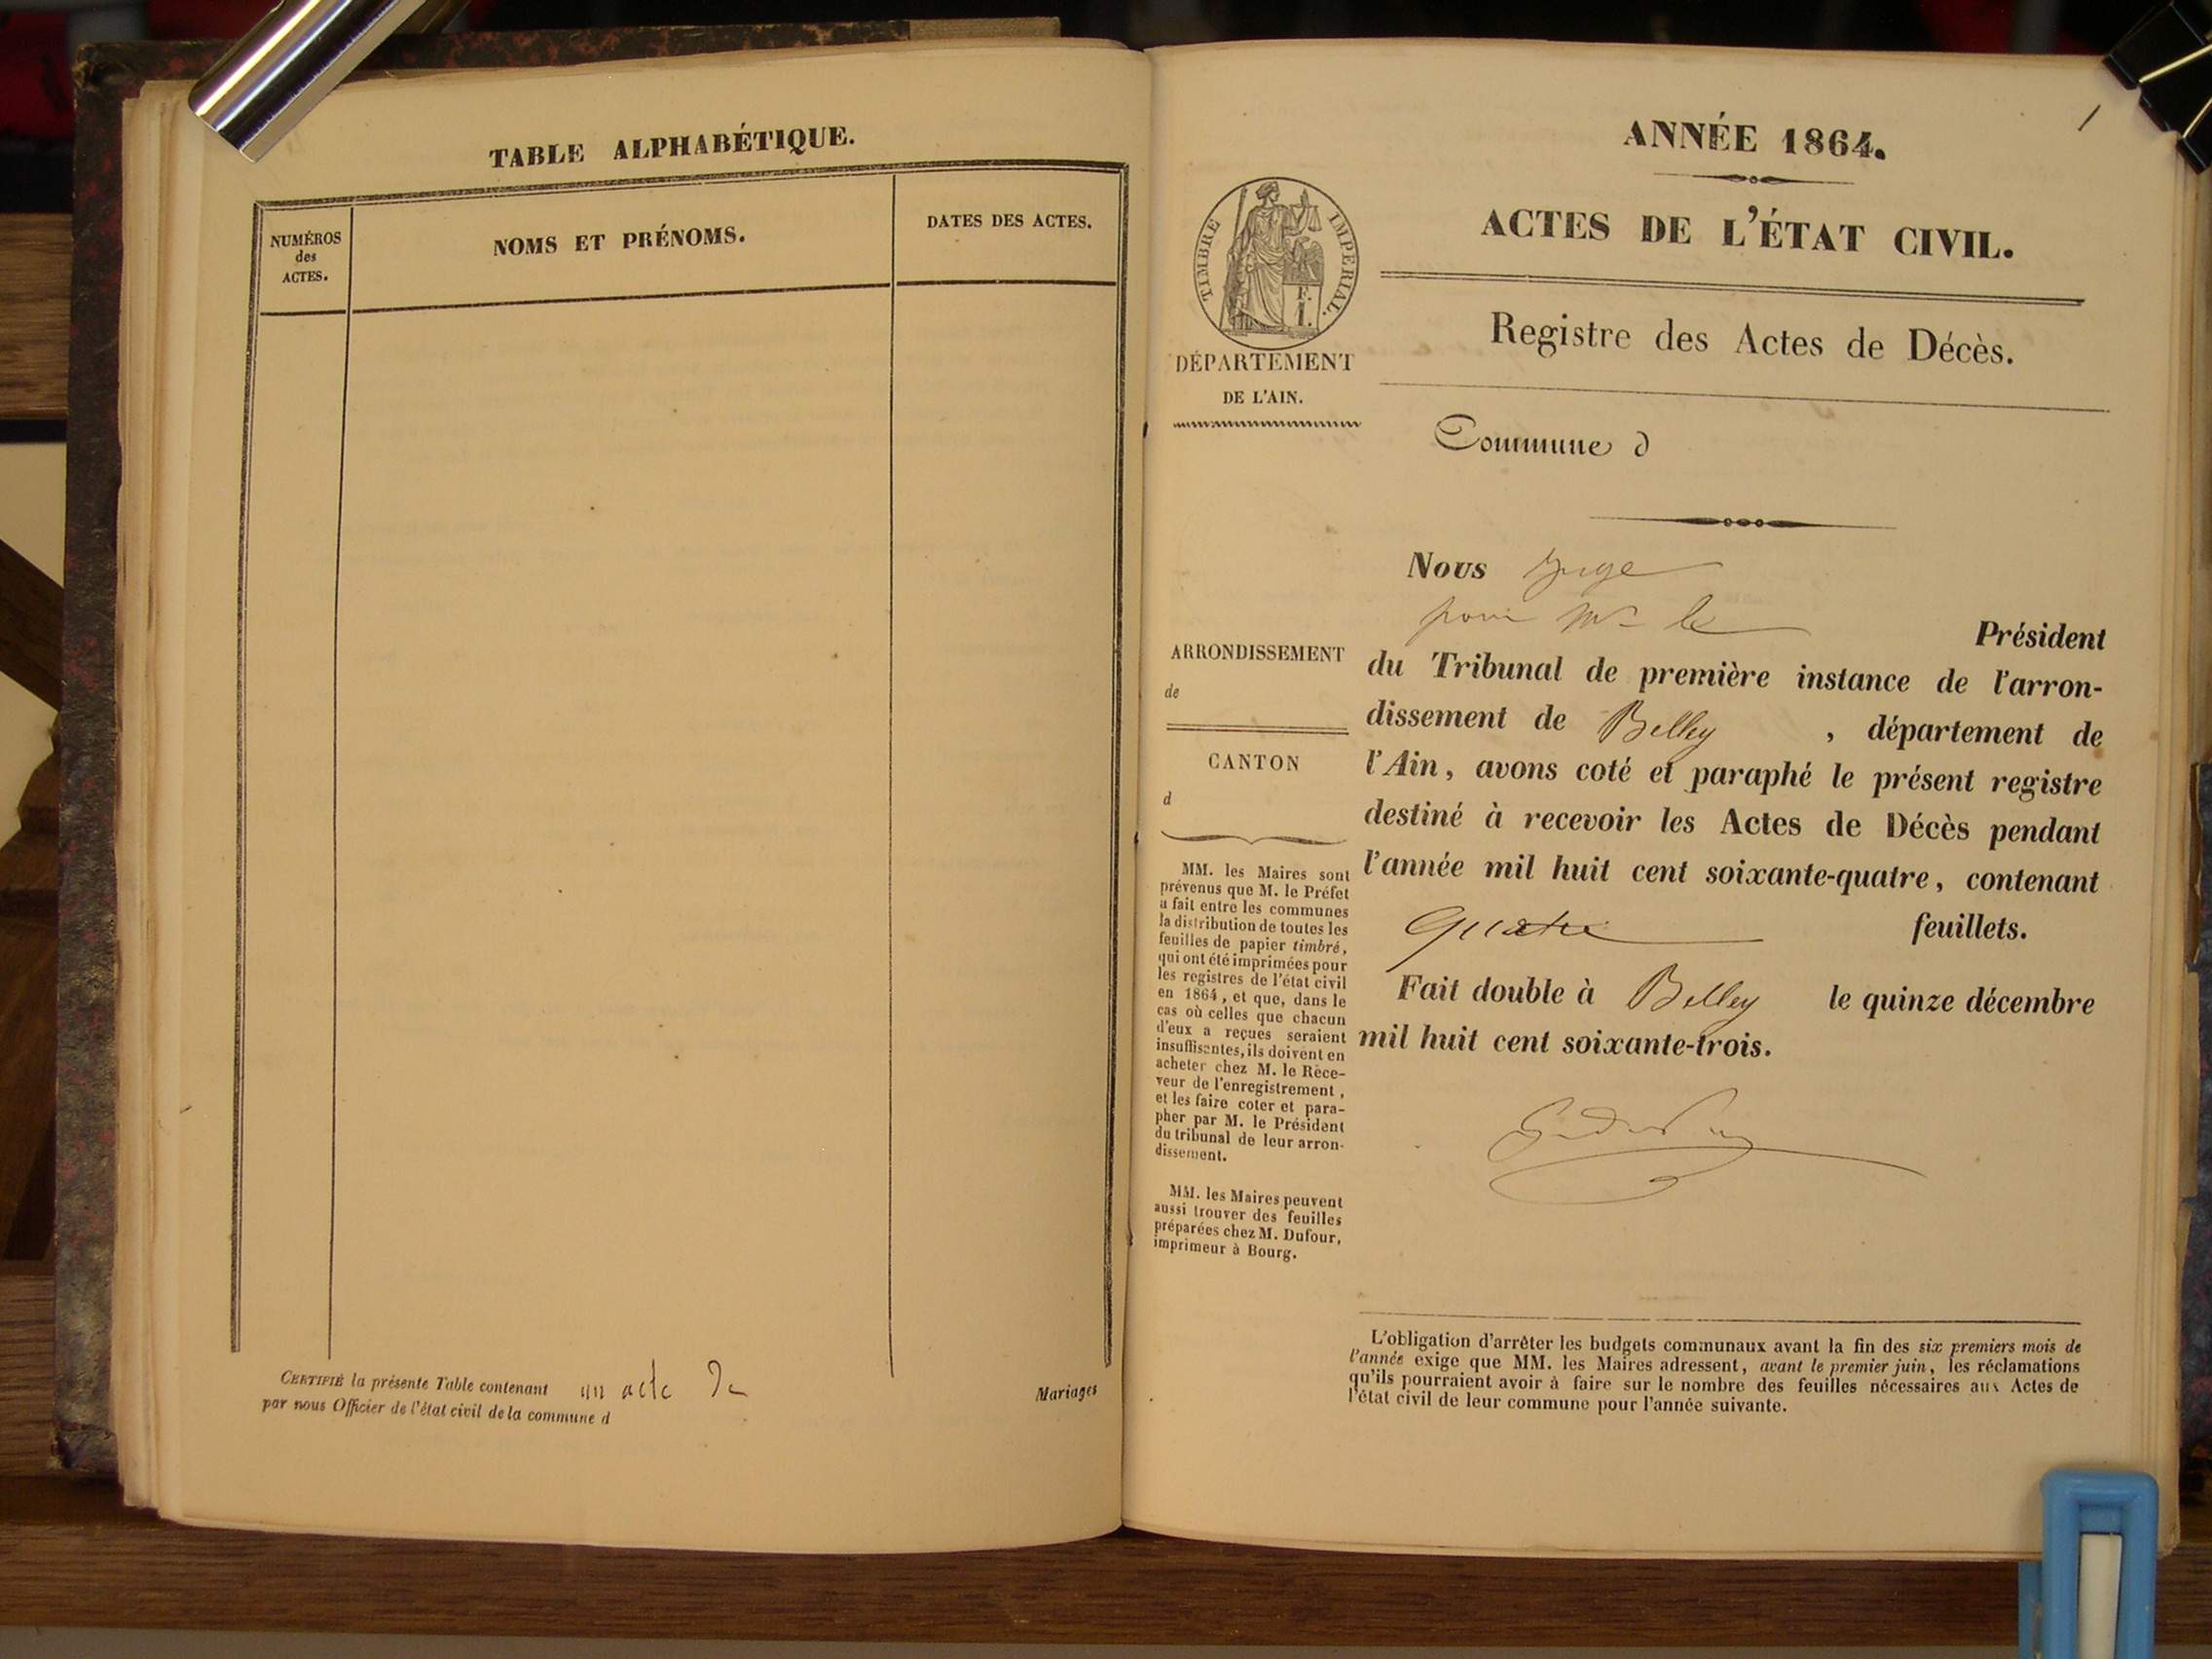 TABLE ALPHABÉTIQUE.
NUMÉROS
des
ACTES.
NOMS ET PRÉNOMS.
DATES DES ACTES.
CERTIFIÉ la présente Table contenant un acte de Mariages
par nous Officier de l'état civil de la commune d
ANNÉE 1864.
ACTES DE L'ÉTAT CIVIL.
TIMBRE IMPÉRIAL.
DÉPARTEMENT
DE L'AIN.
Registre des Actes de Décès.
Commune d
Nous Juge
pour Mr le Président
du Tribunal de première instance de l'arron-
dissement de Belley, département de
l'Ain, avons coté et paraphé le présent registre
destiné à recevoir les Actes de Décès pendant
l'année mil huit cent soixante-quatre, contenant
quatre feuillets.
Fait double à Belley le quinze décembre
mil huit cent soixante-trois.
ARRONDISSEMENT
de
CANTON
d
MM. les Maires sont
prévenus que M. le Préfet
a fait entre les communes
la distribution de toutes les
feuilles de papier timbré,
qui ont été imprimées pour
les registres de l'état civil
en 1864, et que, dans le
cas où celles que chacun
d'eux a reçues seraient
insuffisantes, ils doivent en
acheter chez M. le Rece-
veur de l'enregistrement,
et les faire coter et para-
pher par M. le Président
du tribunal de leur arron-
dissement.
MM. les Maires peuvent
aussi trouver des feuilles
préparées chez M. Dufour,
imprimeur à Bourg.
L'obligation d'arrêter les budgets communaux avant la fin des six premiers mois de
l'année exige que MM. les Maires adressent, avant le premier juin, les réclamations
qu'ils pourraient avoir à faire sur le nombre des feuilles nécessaires aux Actes de
l'état civil de leur commune pour l'année suivante.